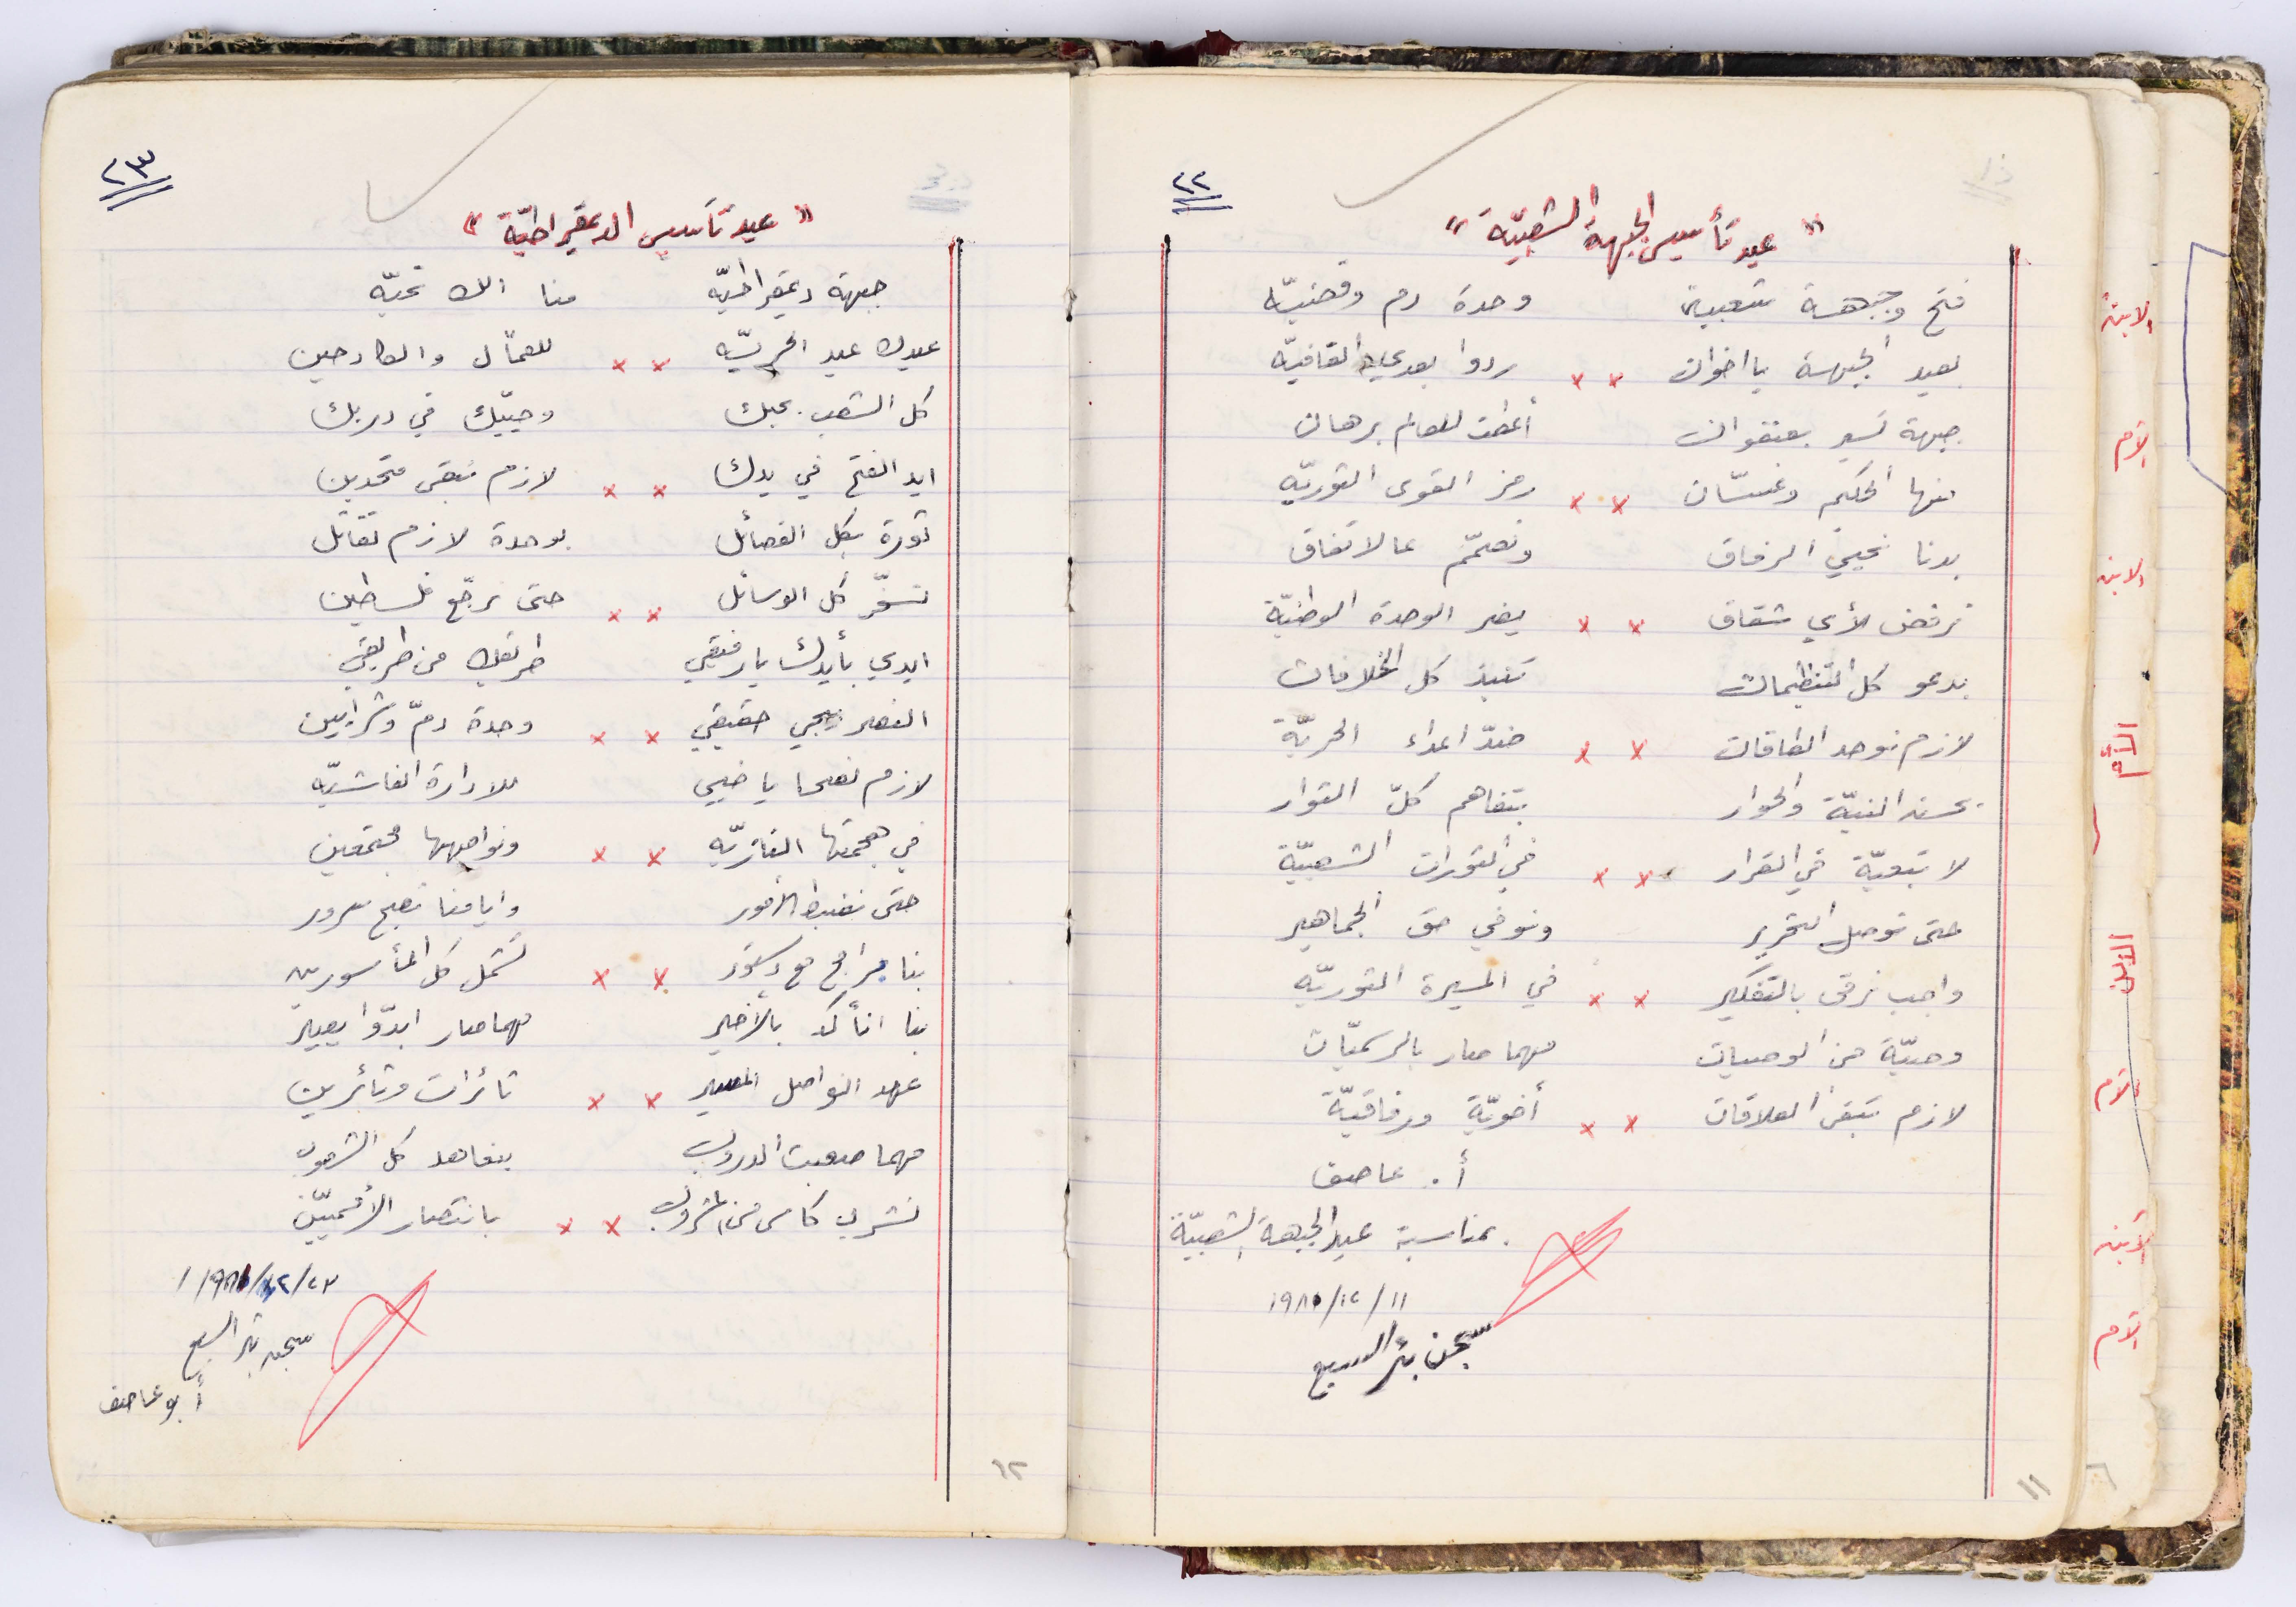 ٢٢
" عيد تأسيس الجبهة الشعبيّة "
فتح وجبهة شعبية وحدة دم وقضيّه
بعيد الجبهة يا اخوان × × ردوا بعدي القافيّه
جبهة تسير بعنفوان أعطت للعالم برهان
منها الحكيم وغسّان × × رمز القوى الثوريّه
بدنا نحيي الرفاق ونصمّم عالاتفاق
نرفض لأي شقاق × × يضر الوحدة الوطنيّة
بدعو كل التنظيمات تنبذ كل الخلافات
لازم نوحد الطاقات × × ضدّ اعداء الحريّة
بحسن النيّة والحوار بتفاهم كلّ الثوار
لا تبعيّة في القرار × × في الثورات الشعبيّة
حتى نوصل التحرير ونوفي حق الجماهير
واجب نرقى بالتفكير × × في المسيرة الثوريّه
وصيّة من الوصيات مهما صار بالرسميّات
لازم تبقى العلاقات × × أخويّة ورفاقيّة
أ. عاصف
بمناسبة عيد الجبهة الشعبيّة
١١/١٢/١٩٨١
سجن بئر السبع
١١
٢٣
" عيد تأسيس الديمقراطيّة "
جبهة ديمقراطيّه منا الك تحيّه
عيدك عيد الحريّه × × للعمّال والكادحين
كل الشعب بحبك وحيّيك في دربك
ايد الفتح في يدك × × لازم نبقى متحدين
ثورة بكل الفصائل بوحدة لازم تقاتل
نسخّر كل الوسائل × × حتى نرجّع فلسطين
ايدي بأيدك يا رفيقي طريقك من طريقي
النصر بيجي حقيقي × × وحدة دمّ وشرايين
لازم نصحا يا خيي للادارة الفاشيّه
في هجمتها النازيّه × × ونواجهها مجتمعين
حتى نضبط الأمور وايامنا تصبح سرور
بنا برامج مع دستور × × تشمل كل المأسورين
بنا انأكد بالأخير مهما صار ابدّوا يصير
عهد انواصل المسير × × ثائرات وثائرين
مهما صعبت الدروب بنعاهد كل الشعوب
نشرب كاس من المشروب × × بانتصار الأمميّين
٢٣/١٢/١٩٨١
سجن بئر السبع
أبو عاصف
١٢
الابن
الأم
الابن
الأم
الابن
الأم
الابن
الأم